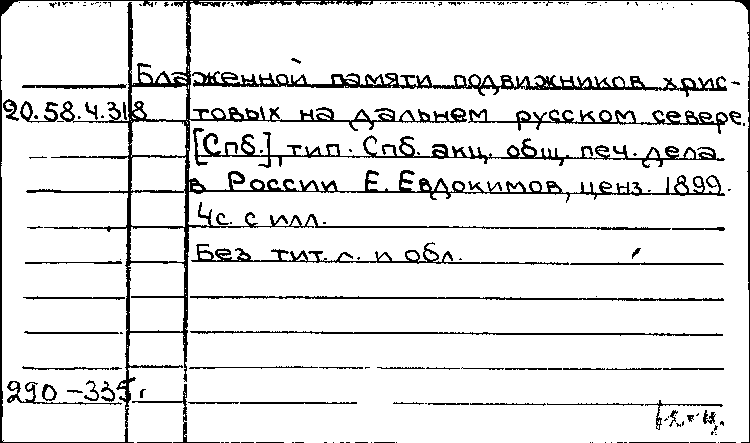 Блаженной памяти подвижников хрис-
20.58.4.318 товых на дальнем русском севере.
[Спб.], тип. Спб. акц. общ. печ. дела
в России Е. Евдокимов, ценз. 1899.
4с. с илл.
Без тит. л. и обл.
290-335г